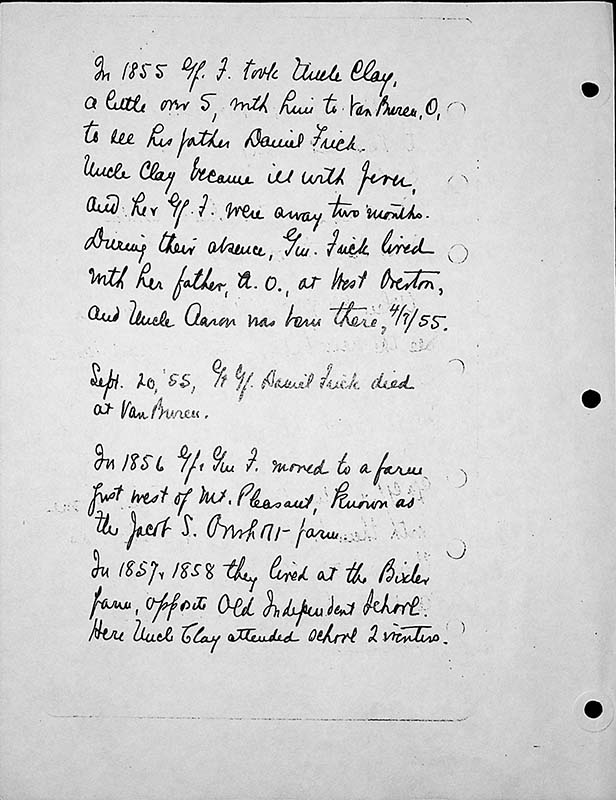 In 1855 Gf. F. took Uncle Clay,
a little over 5, with him to Van Buren, O,
to see his father Daniel Frick.
Uncle Clay became ill with fever,
and he & Gf. F. were away two months.
During their absence, Gm. Frick lived
with her father, A. O., at West Overton,
and Uncle Aaron was born there, 4/7/55.
Sept. 20, '55, Gt Gf. Daniel Frick died
at Van Buren.
In 1856 Gf. & Gm F. moved to a farm
just west of Mt. Pleasant, known as
the Jacob S. Overholt farm
In 1857 & 1858 they lived at the Bixler
farm, opposite Old Independent School.
Here Uncle Clay attended school 2 winters.